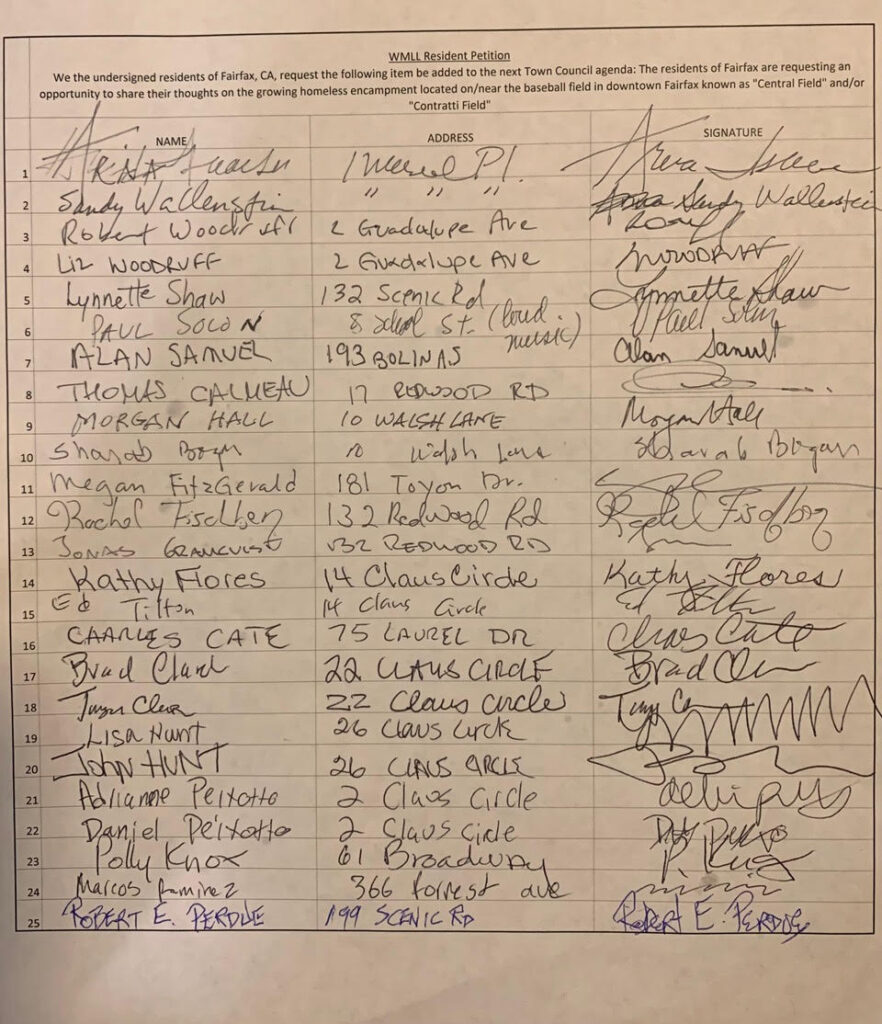 WMLL Resident Petition
We the undersigned residents of Fairfax, CA, request the following item be added to the next Town Council agenda: The residents of Fairfax are requesting an
opportunity to share their thoughts on the growing homeless encampment located on/near the baseball field in downtown Fairfax known as "Central Field" and/or
"Contratti Field"
NAME ADDRESS SIGNATURE
1 Pl.
2 Sandy Wallenstein " " " Sandy Wallenstein
3 Robert Woodruff 2 Guadalupe Ave
4 Liz WOODRUFF 2 Guadalupe Ave
5 Lynnette Shaw 132 Scenic Rd Lynnette Shaw
6 PAUL SOLON 8 School St. (loud music) Paul Solon
7 ALAN SAMUEL 193 BOLINAS Alan Samuel
8 THOMAS CALMEAU 17 REDWOOD RD
9 MORGAN HALL 10 WALSH LANE Morgan Hall
10 10 Walsh Lane Bogan
11 Megan FitzGerald 181 Toyon Dr.
12 Rachel 132 Redwood Rd Rachel
13 JONAS 132 REDWOOD RD
14 Kathy Flores 14 Claus Circle Kathy Flores
15 Ed Tilton 14 Claus Circle Ed
16 CHARLES CATE 75 LAUREL DR Chas Cate
17 Brad 22 CLAUS CIRCLE Brad
18 22 Claus circle
19 Lisa Hunt 26 Claus Circle
20 John HUNT 26 CLAUS CIRCLE
21 Adrianne Peixotto 2 Claus Circle
22 Daniel Peixotto 2 Claus Circle
23 Polly Knox 61 Broadway
24 Marcos Ramirez 366 forrest ave
25 ROBERT E. PERDUE 199 SCENIC RD Robert E. PERDUE